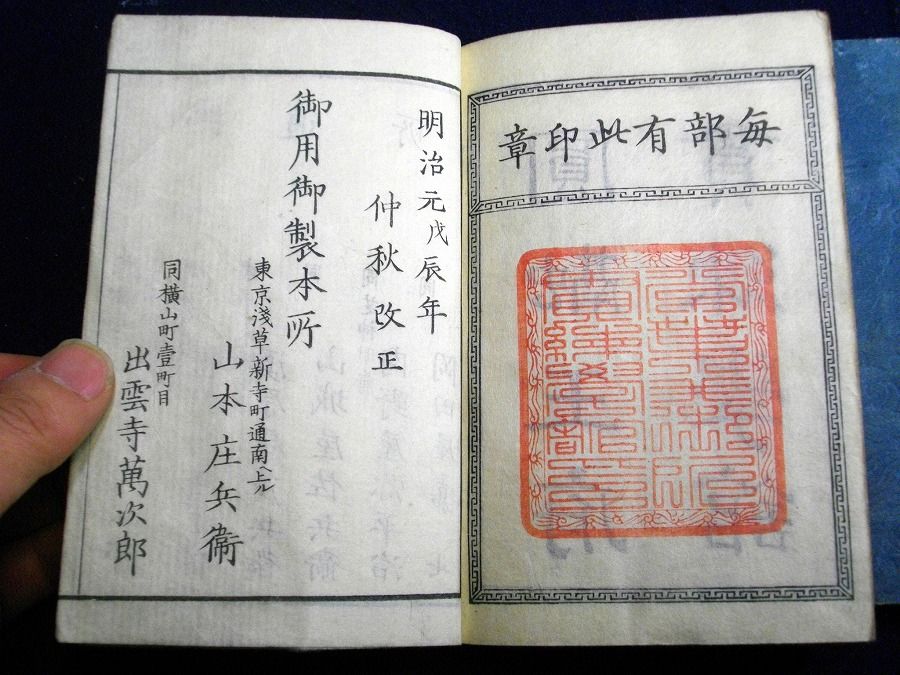 毎部有此印章
明治元戊辰年
仲秋改正
御用御製本所
東京淺草新寺町通南ヘ上ル
山本庄兵衞
同橫山町壹町目
出雲寺萬次郎